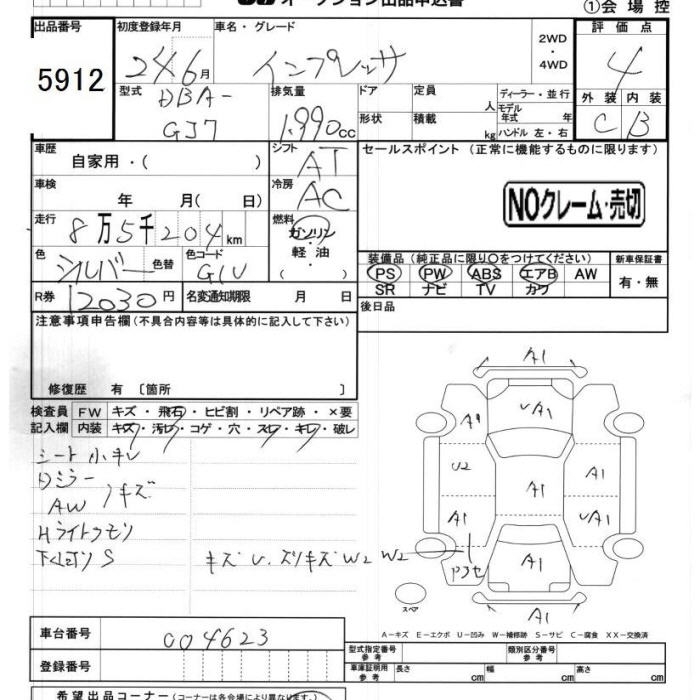 オークション出品申込書
①会場控
出品番号 初度登録年月 車名・グレード 2WD ・ 4WD 評価点
5912 24 6月 インプレッサ 4
型式 DBA- GJ7 排気量 1,990cc ドア 定員 人 ディーラー・並行 外装 内装
形状 積載 kg モデル年式 年 ハンドル 左・右 C B
車歴 自家用・( ) シフト AT セールスポイント (正常に機能するものに限ります)
車検 年 月( 日) 冷房 AC
NOクレーム・売切
走行 8万5千204km 燃料 ガソリン・軽油・( )
色 シルバー 色替 色コード G1U
装備品 (純正品に限り〇をつけてください) 新車保証書
PS PW ABS エアB AW 有・無
SR ナビ TV カワ
R券 12030円 名変通知期限 月 日 後日品
注意事項申告欄 (不具合内容等は具体的に記入して下さい)
修復歴 有 〔箇所 〕
検査員 FW キズ・飛石・ヒビ割・リペア跡・×要
記入欄 内装 キズ・汚れ・コゲ・穴・スレ・キレ・破レ
シート小キレ
Dミラー
AW キズ
Hライトクモリ
下回りS
キズU.スリキズW2 W2
A1
UA1
A1
A1
U2
A1
A1
UA1
A1
A1
A1
スペア
A－キズ E－エクボ U－凹み W－補修跡 S－サビ C－腐食 XX－交換済
車台番号 004623
登録番号
型式指定番号 参考 類別区分番号 参考
車庫証明用 参考 長さ cm 幅 cm 高さ cm
希望出品コーナー (コーナーは各会場により異なります)